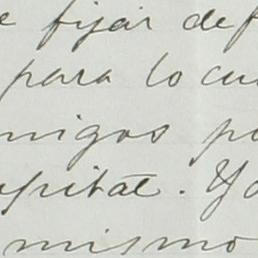 e fijar def
para lo cu
migos p
pital. Yo
mismo